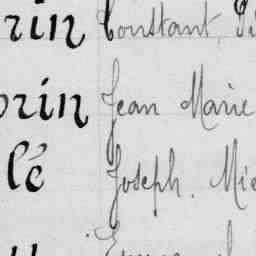 rin Constant
orin Jean Marie
lé Joseph. Mi